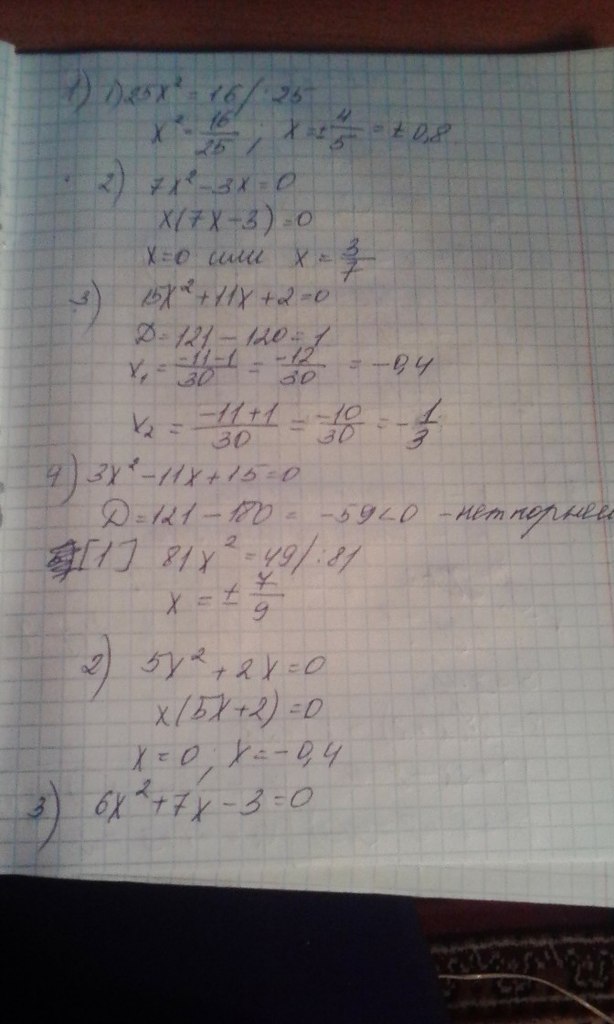 1) 1) 25x² = 16 / : 25
x² = 16/25 ; x = ± 4/5 = ± 0,8
2) 7x² - 3x = 0
x(7x - 3) = 0
x = 0 или x = 3/7
3) 15x² + 11x + 2 = 0
D = 121 - 120 = 1
x₁ = -11-1/30 = -12/30 = -0,4
x₂ = -11+1/30 = -10/30 = -1/3
4) 3x² - 11x + 15 = 0
D = 121 - 180 = -59 < 0 - нет корней
[1] 81x² = 49 / : 81
x = ± 7/9
2) 5x² + 2x = 0
x(5x + 2) = 0
x = 0 ; x = -0,4
3) 6x² + 7x - 3 = 0